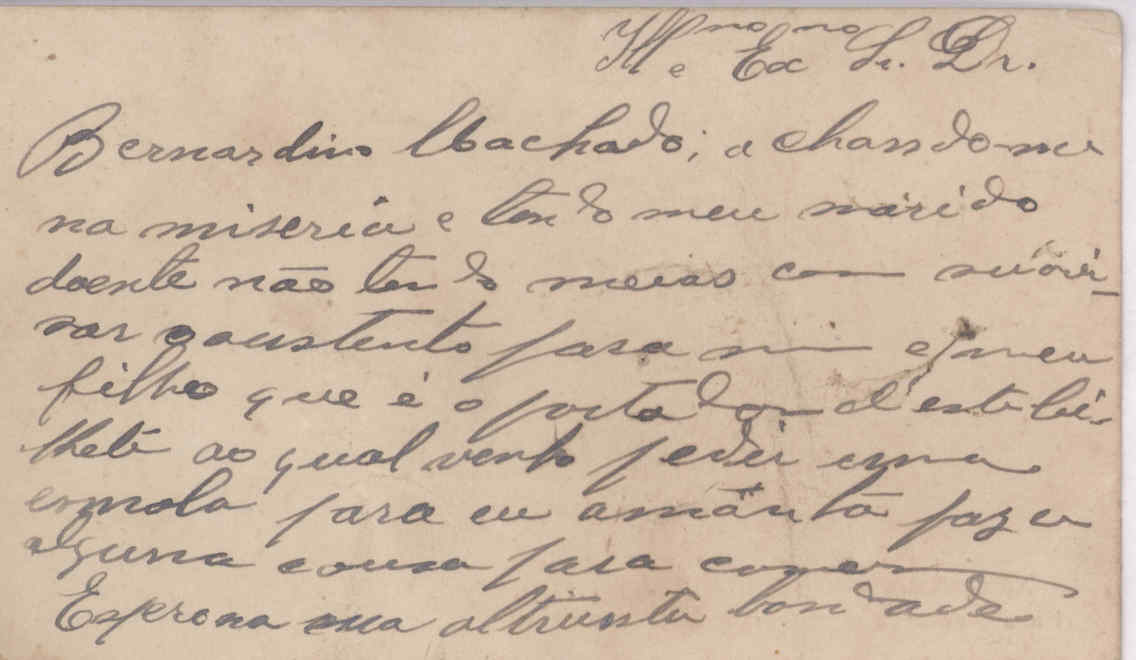 Illmo e Exmo Sr. Dr.
Bernardino Machado, achando-me
na miseria e tendo meu marido
doente não tendo meios com
sar o sustento para mim e meu
filho que é o portador d'este bi-
lhete ao qual venho pedir uma
esmola para eu amãnhã fazer
alguma cousa para comer
Espero na sua altruista bondade